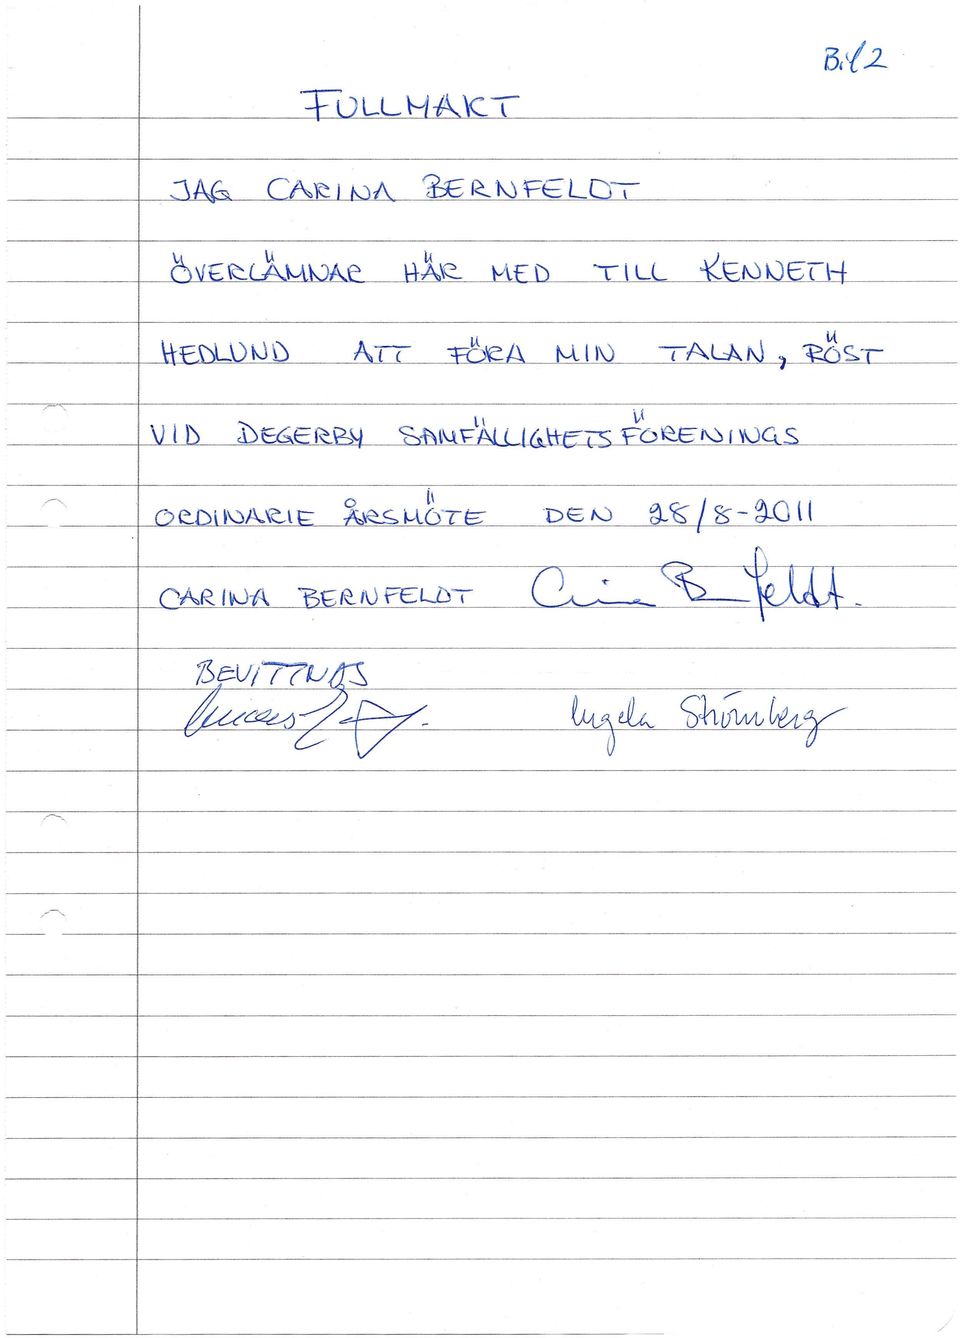 Bil 2
FULLMAKT
JAG CARINA BERNFELDT
ÖVERLÄMNAR HÄR MED TILL KENNETH
HEDLUND ATT FÖRA MIN TALAN, RÖST
VID DEGERBY SAMFÄLLIGHETSFÖRENINGS
ORDINARIE ÅRSMÖTE DEN 28/8-2011
CARINA BERNFELDT Carina Bernfeldt.
BEVITTNAS
Ingela Strömberg